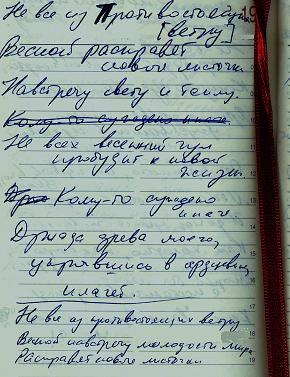 Не все из противостоящих
[ветру]
Весной расправят
новые листочки.
Навстречу свету и теплу.
Кому-то суждено иное.
Не всех весенний гул
пробудит к новой
жизни.
Кому-то суждено
иное.
Дриада древа моего,
укрывшись в сердцевине
плачет.
Не все из противостоящих ветру
Весной навстречу молодости мира
Расправят новые листочки